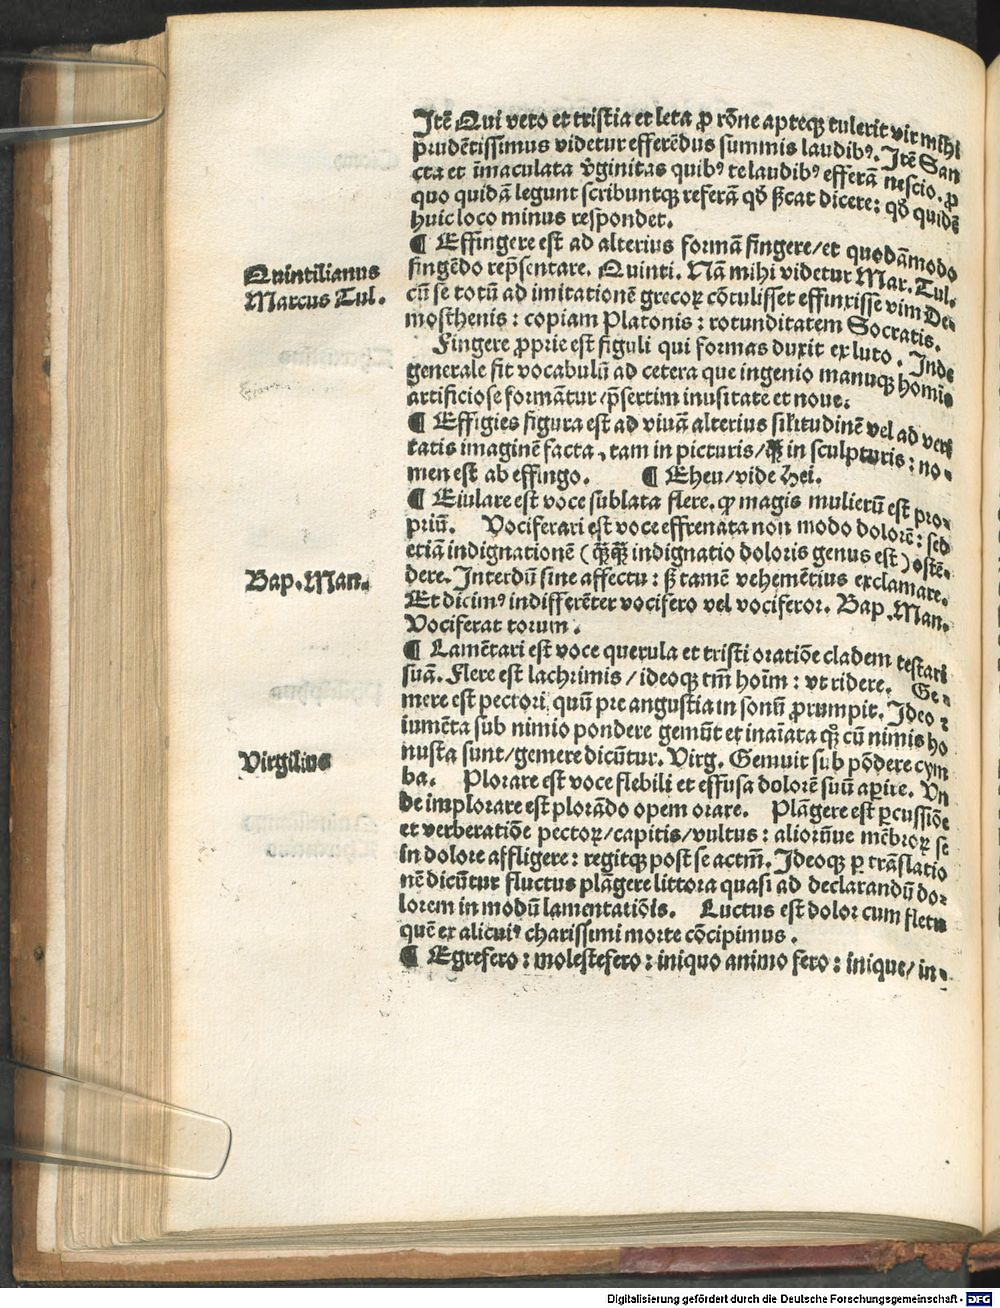 Itē Qui vero et tristia et leta ꝓ rōne apteqꝫ tulerit vir mihi
prudētissimus videtur efferēdus summis laudibꝰ. Itē San
cta et īmaculata v̄ginitas quibꝰ te laudibꝰ efferā nescio. ꝓ
quo quidā legunt scribuntqꝫ referā qđ ꝓ̄cat dicere: qđ quidē
huic loco minus respondet.
¶ Effingere est ad alterius formā fingere/et quodāmodo
fingēdo rep̄sentare. Quinti. Nā mihi videtur Mar. Tul.
cū se totū ad imitationē grecoꝝ cōtulisset effinxisse vim De-
mosthenis: copiam Platonis: rotunditatem Socratis.
Fingere ꝓprie est figuli qui formas duxit ex luto. Inde
generale fit vocabulū ad cetera que ingenio manuqꝫ homīs
artificiose formātur/p̄sertim inusitate et noue.
¶ Effigies figura est ad viuā alterius sil'itudinē vel ad veri
tatis imaginē facta, tam in picturis/ꝙ̄ in sculpturis: no-
men est ab effingo. ¶ Eheu/vide hei.
¶ Eiulare est voce sublata flere. qꝛ magis mulierū est pro-
priū. Vociferari est voce effrenata non modo dolorē: sed
etiā indignationē (ꝙ̄ꝙ̄ indignatio doloris genus est) ostē-
dere. Interdū sine affectu: sꝫ tamē vehemētius exclamare.
Et dicimꝰ indifferēter vocifero vel vociferor. Bap. Man.
Vociferat torum.
¶ Lamētari est voce querula et tristi oratiōe cladem testari
suā. Flere est lachrimis/ideoqꝫ tm̄ hoīm: vt ridere. Ge-
mere est pectori, quū pre angustia in sonū ꝓrumpit. Ideo ⁊
iumēta sub nimio pondere gemūt et inaīata qꝫ cū nimis ho
nusta sunt/gemere dicūtur. Virg. Gemuit sub pōdere cym
ba. Plorare est voce flebili et effusa dolorē suū aꝑire. Vn
de implorare est plorādo opem orare. Plāgere est ꝑcussiōe
et verberatiōe pectoꝝ/capitis/vultus: aliorūue mēbroꝝ se
in dolore affligere: regitqꝫ post se actm̄. Ideoqꝫ ꝑ trāslatio
nē dicūtur fluctus plāgere littora quasi ad declarandū do-
lorem in modū lamentatiōis. Luctus est dolor cum fletu
quē ex alicuiꝰ charissimi morte cōcipimus.
¶ Egrefero: molestefero: iniquo animo fero: inique/in-
Quintilianus
Marcus Tul.
Bap. Man.
Virgilius
Digitalisierung gefördert durch die Deutsche Forschungsgemeinschaft - DFG